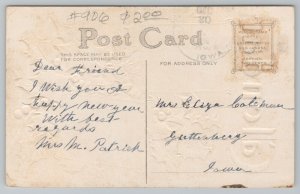 #906 $2.00
IOWA
Post Card
THIS SPACE MAY BE USED FOR CORRESPONDENCE
FOR ADDRESS ONLY
Dear friend
I Wish you a
happy new year
With best
regards
Mrs M. Patrick
Mrs Eliza
Guttenberg
Iowa